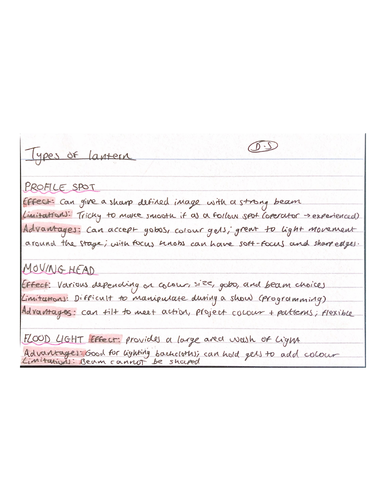 D.S
Types of lantern
PROFILE SPOT
Effect: Can give a sharp defined image with a strong beam
Limitations: Tricky to make smooth if as a follow spot (operator → experienced)
Advantages: Can accept gobos, colour gels; great to light movement
around the stage; with focus knobs can have soft-focus and sharp edges.
MOVING HEAD
Effect: Various depending on colour, size, gobo, and beam choices
Limitations: Difficult to manipulate during a show (programming)
Advantages: can tilt to meet action, project colour + patterns; flexible
FLOOD LIGHT Effect: provides a large area wash of light
Advantages: Good for lighting backcloths; can hold gels to add colour
Limitations: Beam cannot be shaped